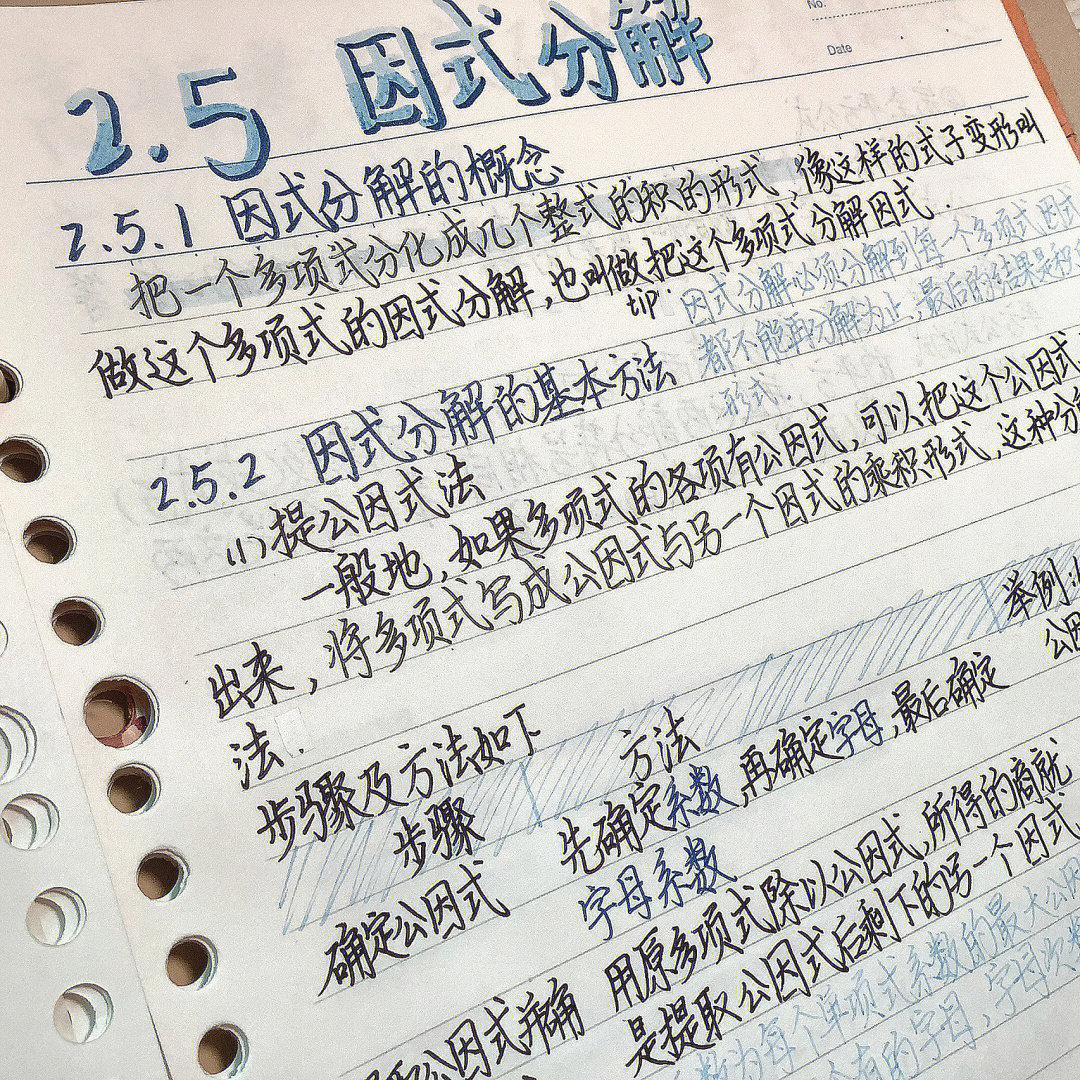 No.
Date
2.5 因式分解
2.5.1 因式分解的概念
把一个多项式分化成几个整式的积的形式,像这样的式子变形叫
做这个多项式的因式分解,也叫做把这个多项式分解因式.
tip: 因式分解必须分解到每一个多项式因式
都不能再分解为止,最后的结果是积
形式.
2.5.2 因式分解的基本方法
(1)提公因式法
一般地,如果多项式的各项有公因式,可以把这个公因式
出来,将多项式写成公因式与另一个因式的乘积形式,这种分
法.
步骤及方法如下
步骤 方法 举例:
确定公因式 先确定系数,再确定字母,最后确定 公因
字母系数
公因式并确 用原多项式除以公因式,所得的商就
是提取公因式后剩下的另一个因式
数为每个单项式系数的最大公因
有的字母,字母次